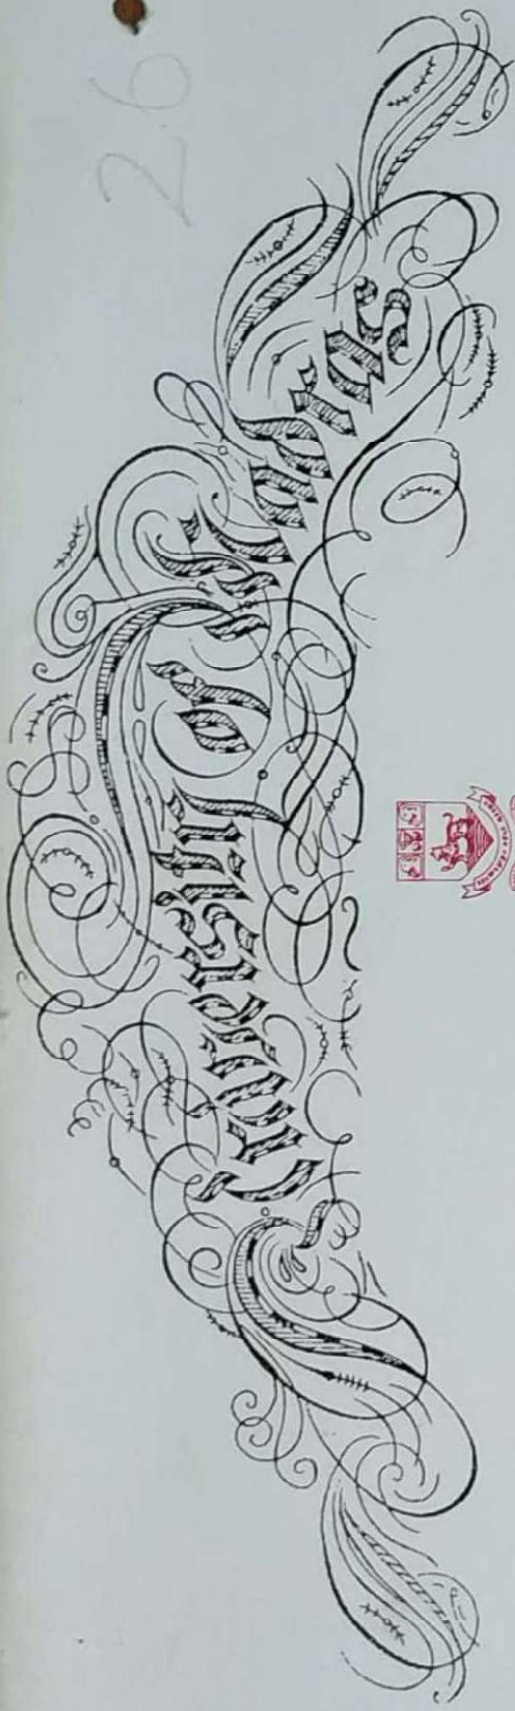 26
University of Madras